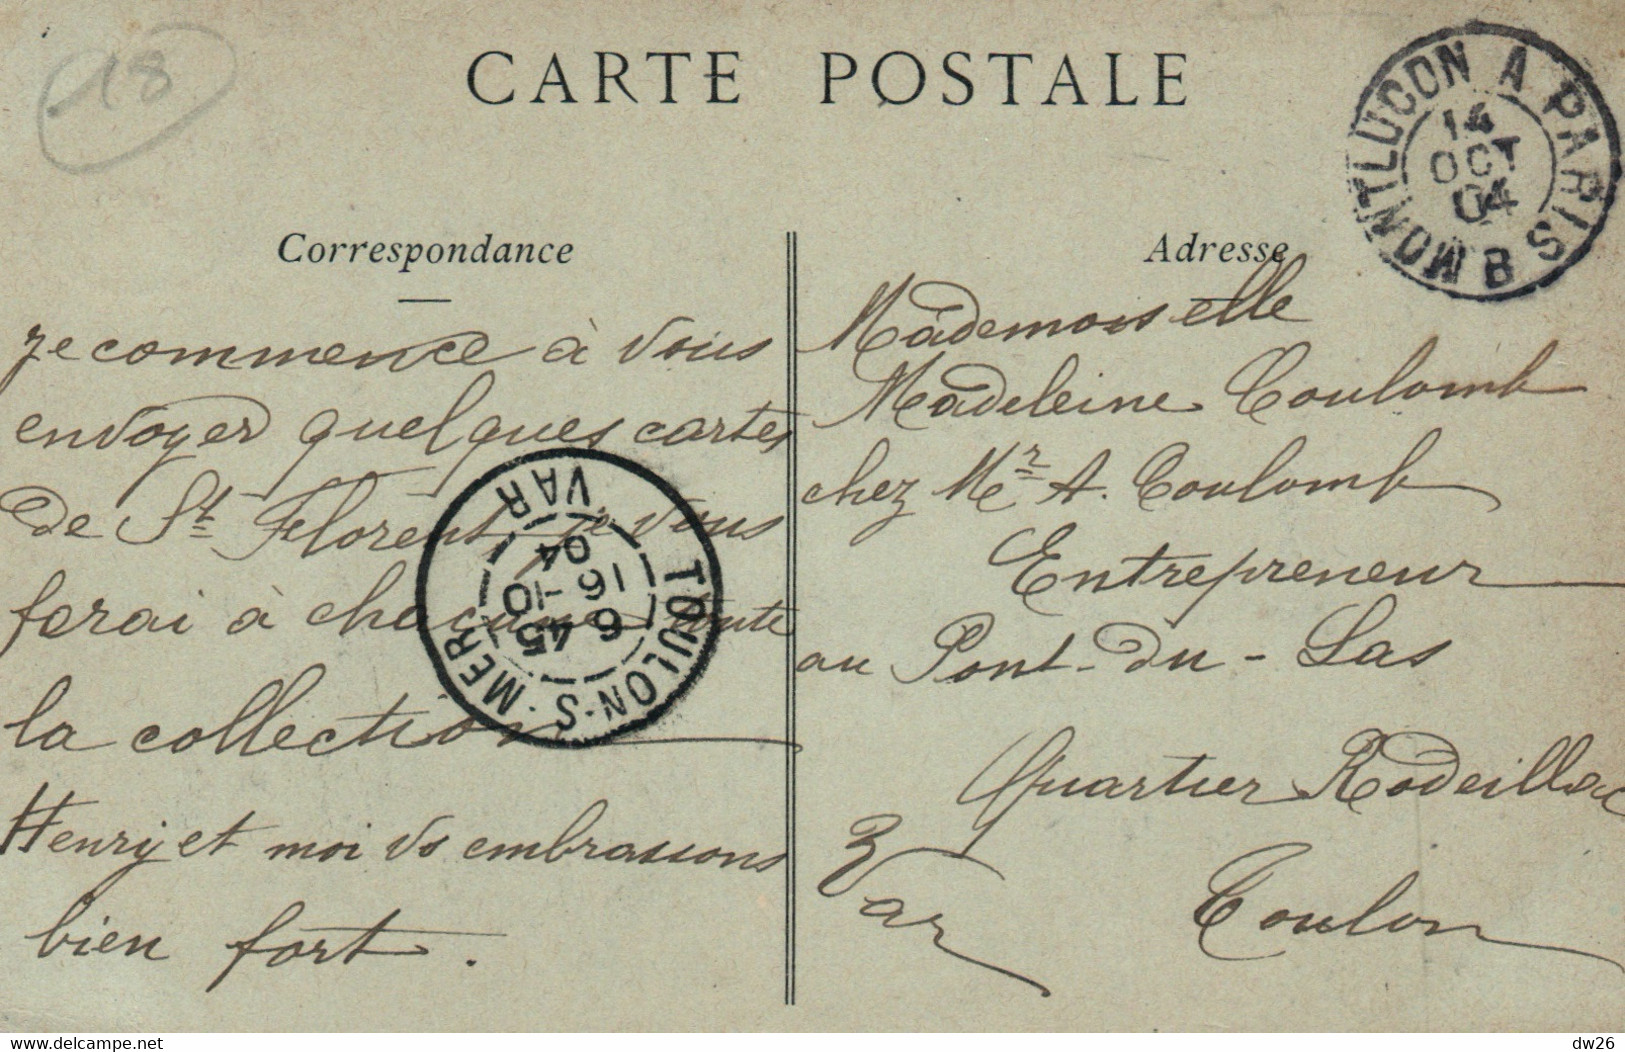 18
CARTE POSTALE
MONTLUCON A PARIS B
14
OCT
04
Correspondance
je commence à vous
envoyer quelques cartes
de St Florent, je vous
ferai à chacune toute
la collection
Henry et moi vs embrassons
bien fort.
TOULON-S-MER
VAR
6 45
16 -10
04
Adresse
Mademoiselle
Madeleine Coulomb
chez Mr A. Coulomb
Entrepreneur
au Pont-du-Las
Quartier Rodeillac
Toulon
Var
www.delcampe.net
dw26